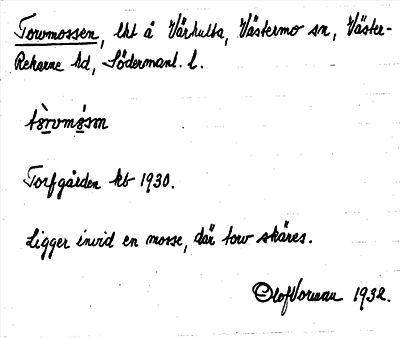 Torvmossen, lht å Vårhulta, Västermo sn, Väster-
Rekarne hd, Södermanl. l.
tòrvmòsøn
Torfgården kb 1930.
Ligger invid en mosse, där torv skäres.
Olof Norman 1932.